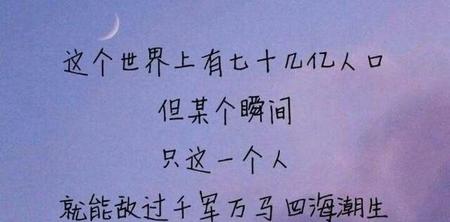 这个世界上有七十几亿人口
但某个瞬间
只这一个人
就能敌过千军万马四海潮生